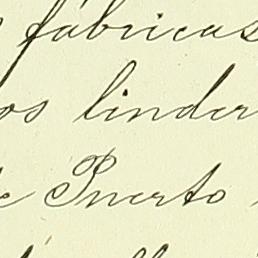 fábricas
os linder
e Puerto